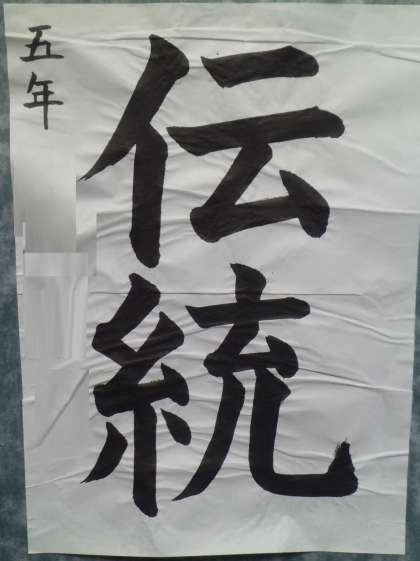 伝統
五年